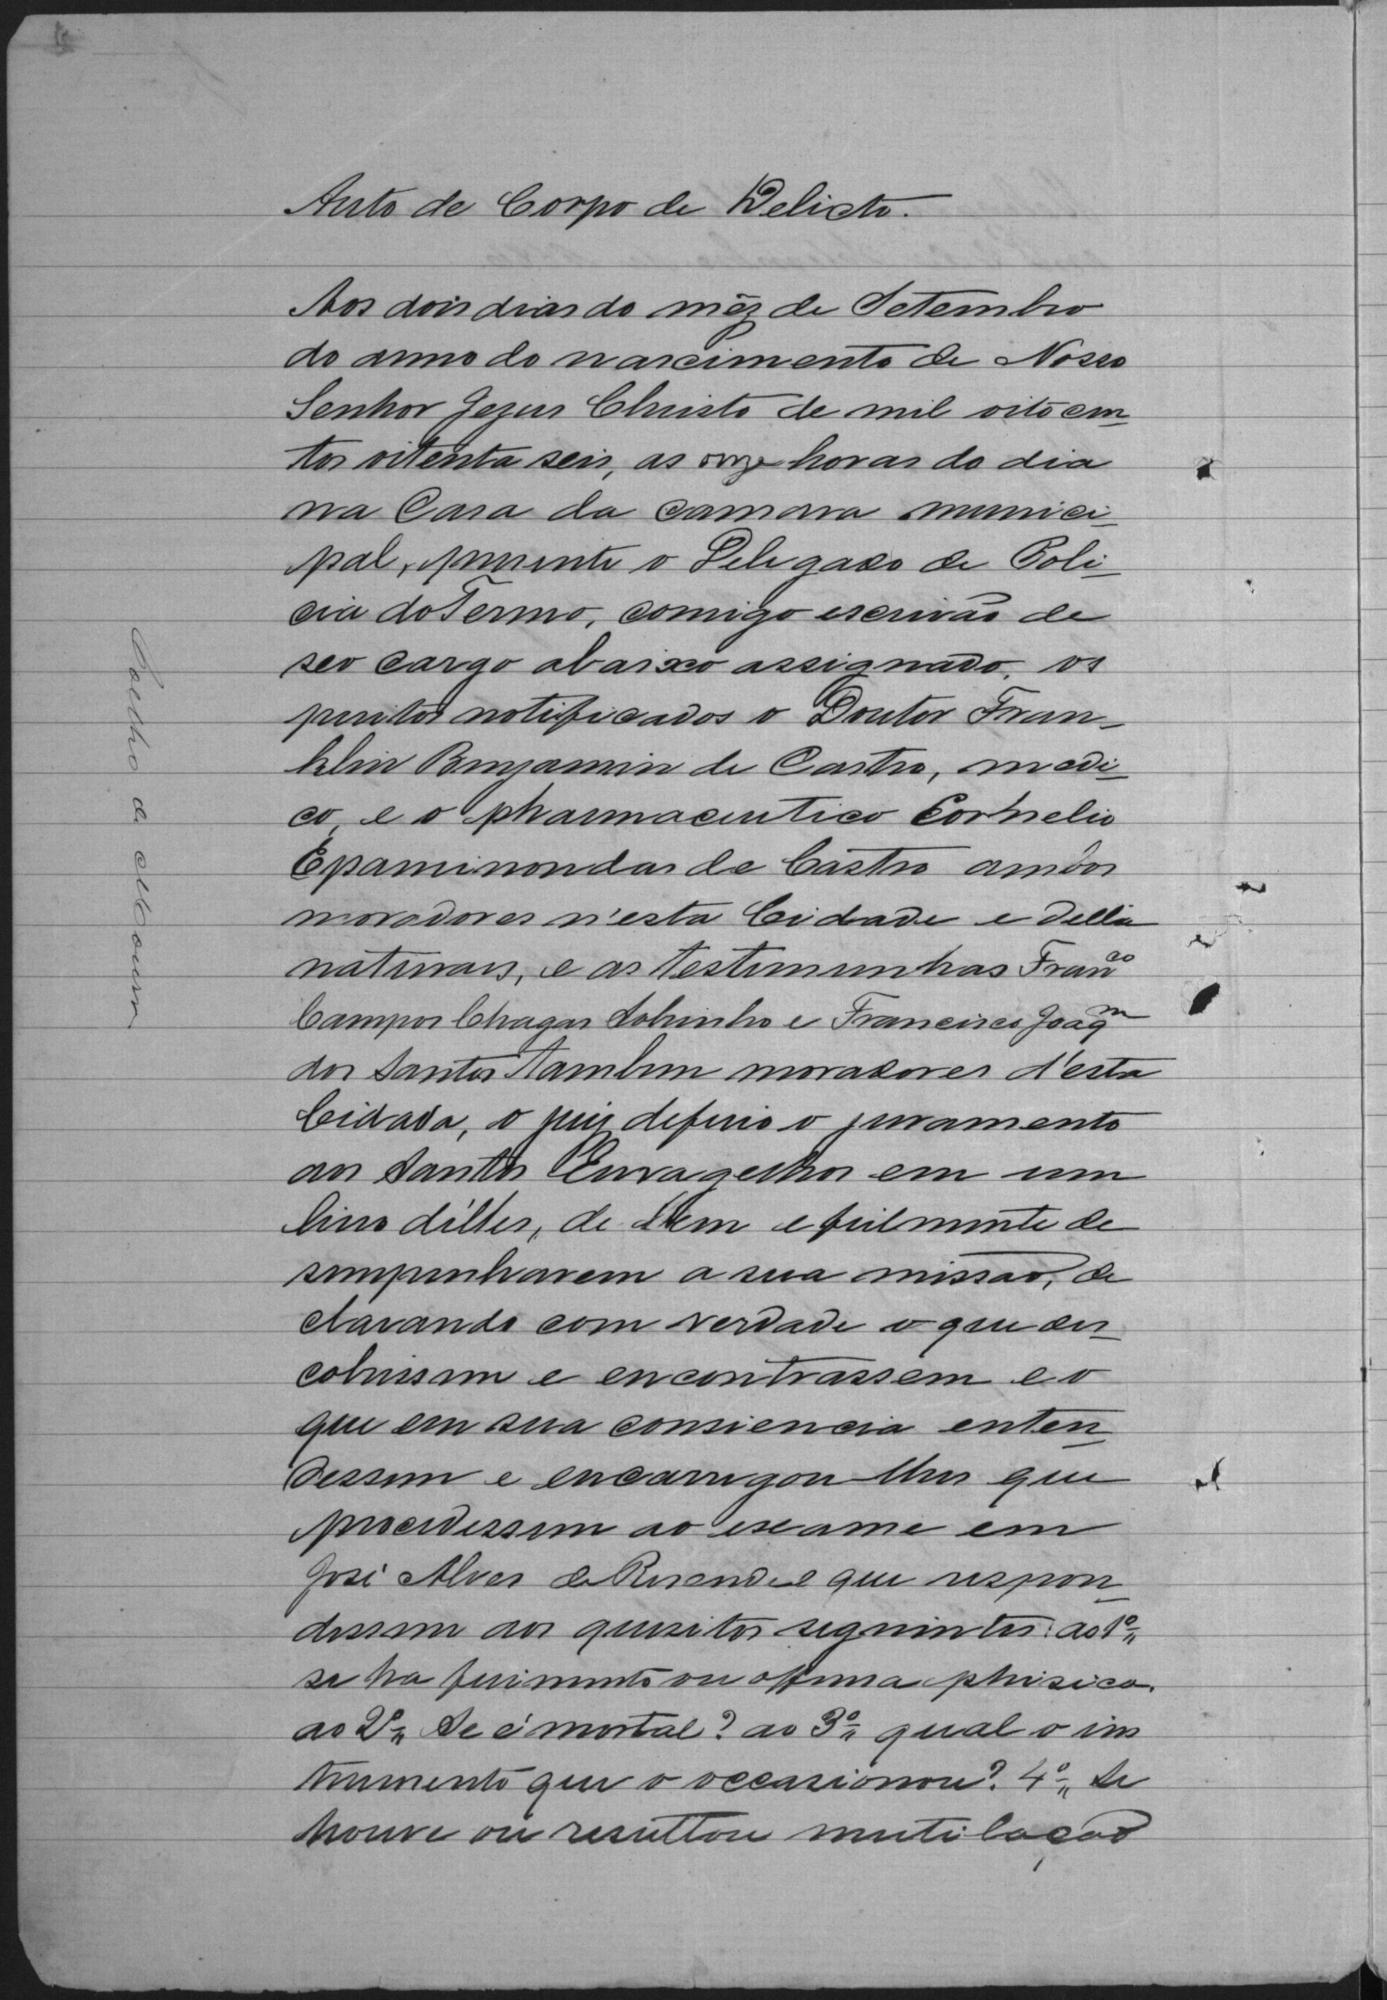 Auto de Corpo de Delicto.
Aos dois dias do mêz de Setembro
do anno do nascimento de Nosso
Senhor Jezus Christo de mil oitocen
tos oitenta seis, as onze horas do dia
na Casa da camara munici
pal, presente o Delegado de Poli
cia do Termo, comigo escrivão de
seo cargo abaixo assignado, os
peritos notificados o Doutor Fran
klin Benjamin de Castro, medi
co, e o pharmaceutico Cornelio
Epaminondas de Castro ambos
moradores n'esta Cidade e della
naturaes, e as testimunhas Franco
Campos Chagas Sobinho e Francisco Joaqm
dos Santos tambem moradores d'esta
Cidada, o juiz deferio o juramento
aos Santos Envagelhos em um
livro d'elles, de bem e fielmente de
sempenharem a sua missão, de
clarando com verdade o que des
cobrissem e encontrassem e o
que em sua consiencia enten
dessem e encarregou-lhes que
procedessem ao exame em
José Alves de Resende e que respon
dessem aos quesitos seguintes: ao 1º
se ha ferimento ou offensa phisica.
ao 2º Se é mortal? ao 3º qual o ins
trumento que o occasionou? 4º Se
houve ou resultou mutilação
de Moura